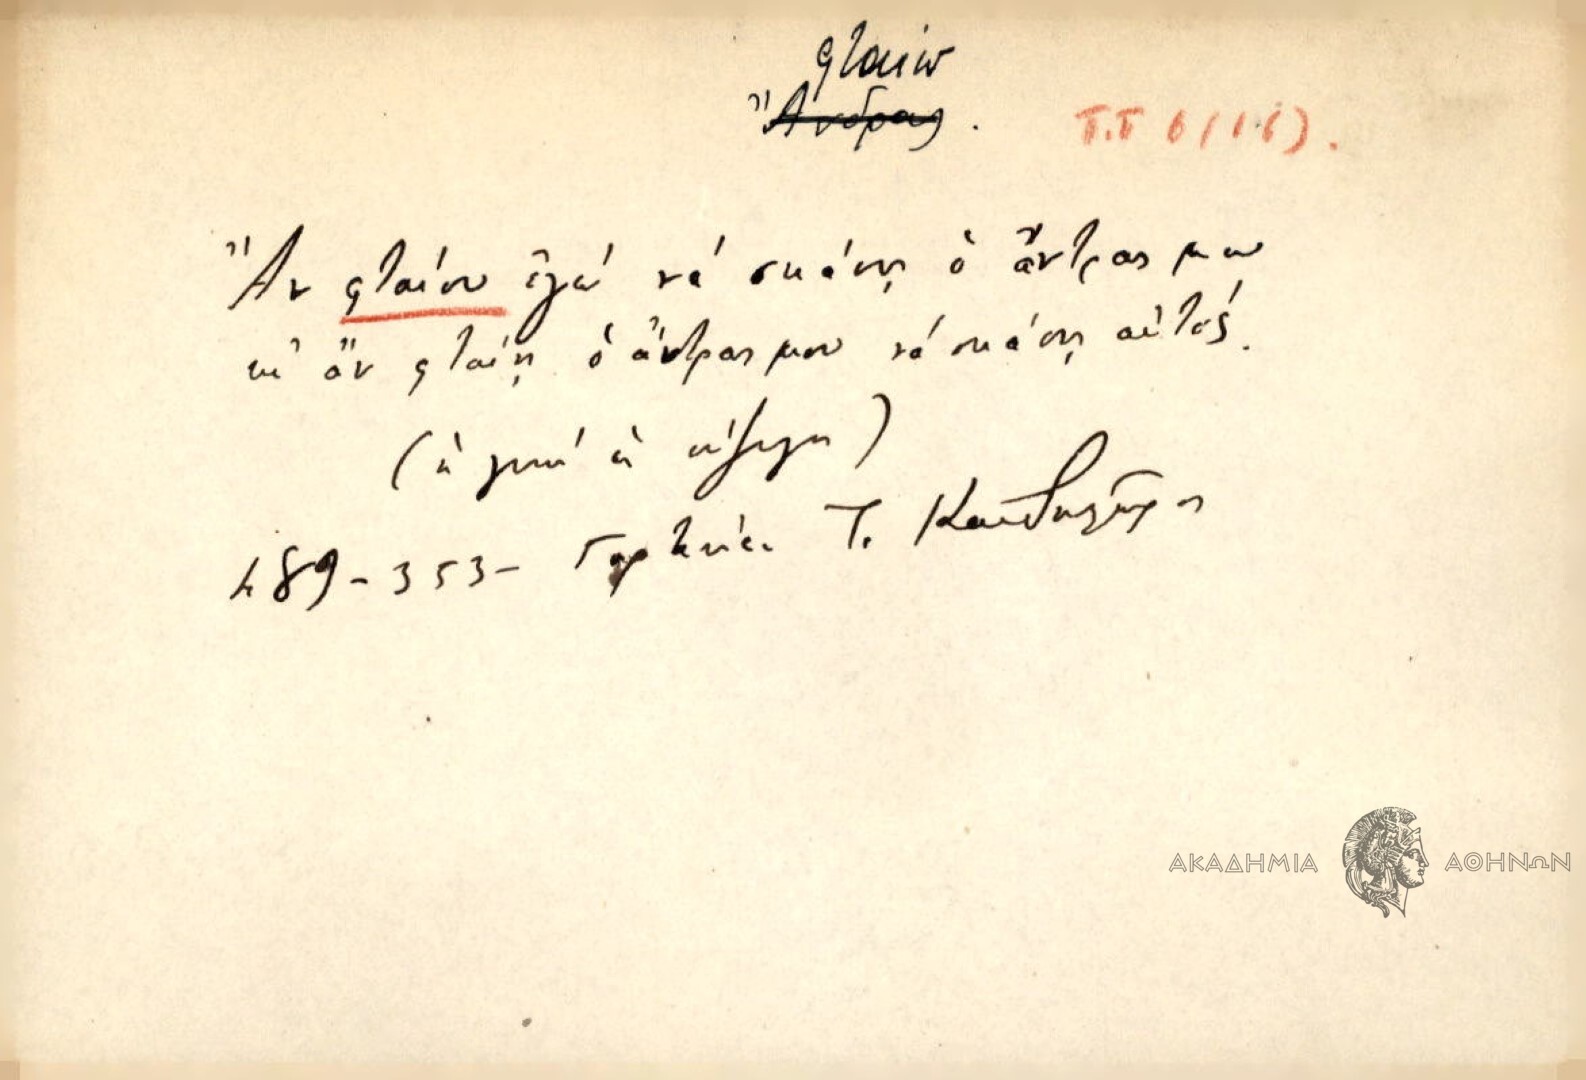 φταίω
Ἄνδρας.
Τ.Τ 6 (16).
Ἄν φταίου ἐγώ νά σκάσῃ ὁ ἄντρας μου
κι' ἄν φταίῃ ὁ ἄντρας μου νά σκάσῃ αὐτός.
(ἡ γρηά ἡ)
489 - 353 - Γορτυνία. Τ. Κανδηλώρος
ΑΚΑΔΗΜΙΑ ΑΘΗΝΩΝ